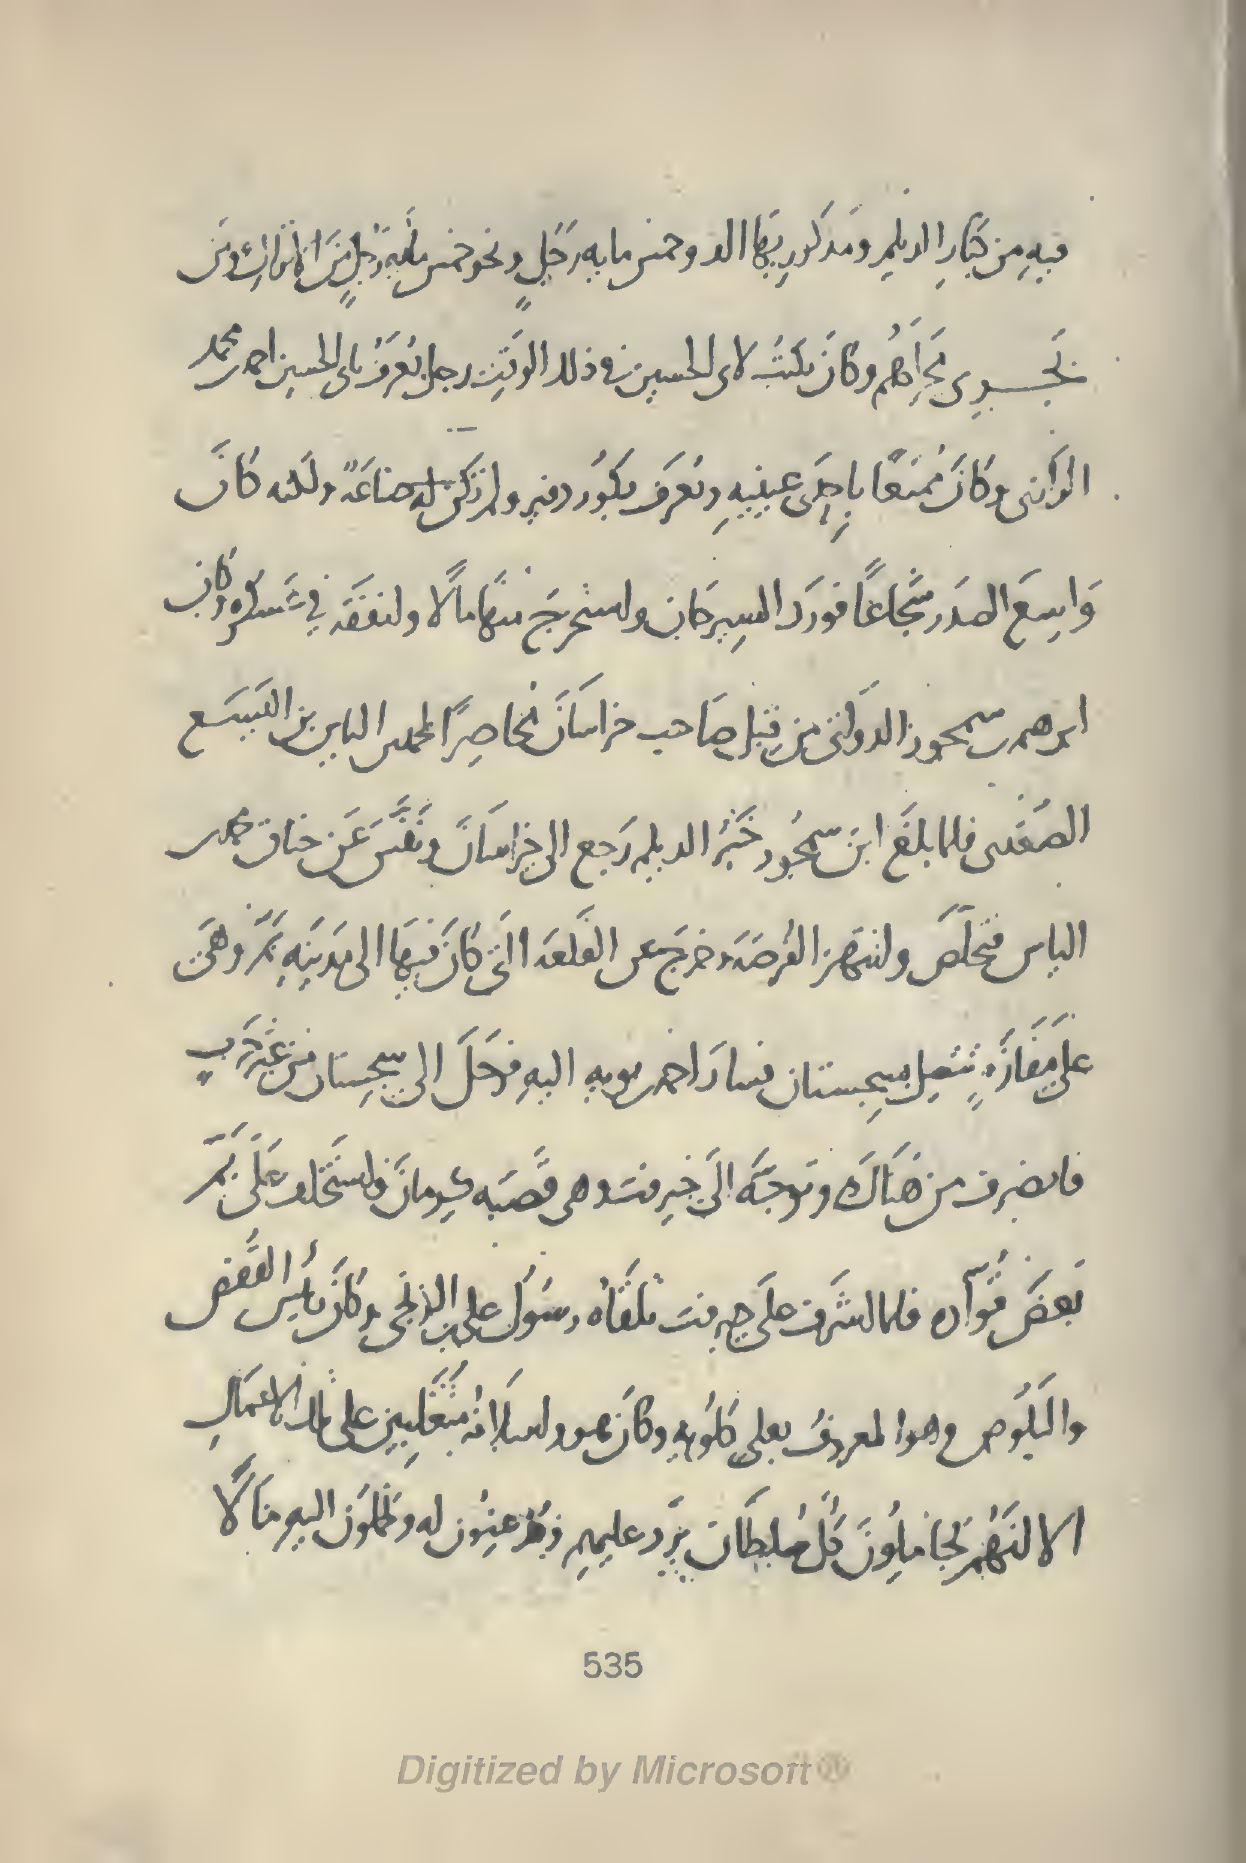 فيه من كبار الديلم ومذكوريها الف وخمس مايه رجل ونحو خمس مايه رجل من الاتراك ومن
يجري مجراهم وكان يكتب لابى الحسين في ذلك الوقت رجل يعرف بابى الحسين احمد بن محمد
الرازى وكان ممتعا باحدى عينيه ويعرف بكور دفير ولم تكن له صناعة ولكنه كان
واسع الصدر شجاعا فورد السيرجان واستخرج منها مالا وانفقه في عسكره وكان
ابرهيم بن سمجور الدواتى من قبل صاحب خراسان محاصرا لمحمد بن الياس بن اليسع
الصغدى فلما بلغ ابن سمجور خبر الديلم رجع الى خراسان ونفس عن خناق محمد بن
الياس فتخلص وانتهز الفرصه وخرج عن القلعه التى كان فيها الى مدينه بم وهى
على مفازة تتصل بسجستان فسار احمد بن بويه اليه فرحل الى سجستان من غير حرب
فانصرف من هناك وتوجه الى جيرفت وهى قصبه كرمان واستخلف على بم
بعض قواده فلما اشرف على جيرفت تلقاه رسول على بن الزنجى وكان رئيس القفص
والبلوص وهو المعروف بعلى كلويه وكان هو واسلافه متغلبين على تلك الاعمال
الا انهم يجاملون كل سلطان يرد عليهم ويذعنون له ويحملون اليه مالا
535
Digitized by Microsoft®